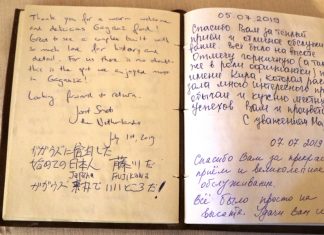 Thank you for a warm welcome
and delicious Gagauz food!
Great to see a complex built with
so much love for history and
detail. For us there is no doubt
this is the gift we enjoyed most
in Gagauzia!
Looking forward to return
Joost
the Netherlands
July 1st, 2019
ガガウズに宿泊した
始めての日本人 藤川だ
JAPAN FUJIKAWA
ガガウズ 素朴でいいところだ!
05.07.2019
Спасибо Вам за теплый
приём и отличное обслужи-
вание. Всё было на
Отмечу горничную (а так
же в роли официантки) по
имени Кира, которая расска-
зала много интересного про
обычаи и кухню
успехов Вам и процветания
С уважением
07.07.2019
Спасибо Вам за прекрасный
приём и великолепное
обслуживание.
Всё было просто на
высоте. Удачи Вам